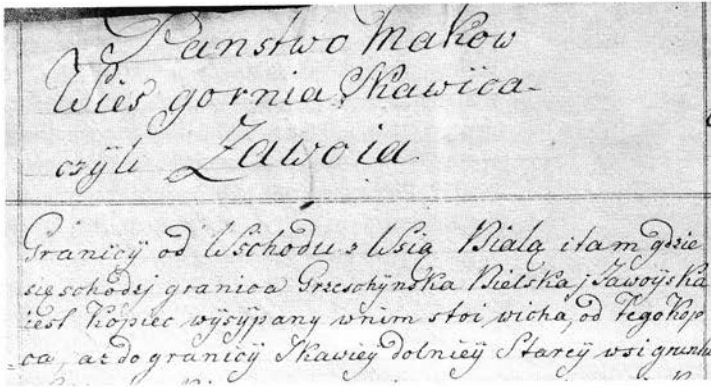 Panstwo Makow
Wies gornia Skawica
czyli Zawoia
Granicÿ od Wschodu z Wsią Biala i tam gdzie
się schodzj granica Grzeschÿnska Bielska j Zawoÿska
iest Kopiec wÿsÿpany wnim stoi wicha, od tego Kop
ca, aż do granicÿ Skawiey dolnieÿ Stareÿ wsi gruntu